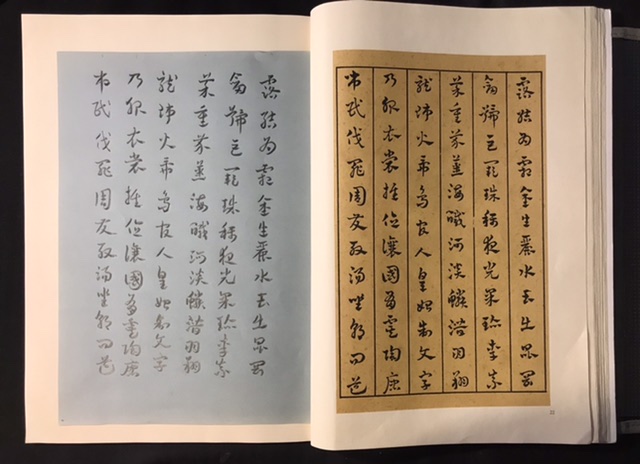 露結為霜金生麗水玉出崑岡
劍號巨闕珠稱夜光果珍李柰
菜重芥薑海鹹河淡鱗潛羽翔
龍師火帝鳥官人皇始制文字
乃服衣裳推位讓國有虞陶唐
弔民伐罪周發殷湯坐朝問道
露結為霜金生麗水玉出崑岡
劍號巨闕珠稱夜光果珍李柰
菜重芥薑海鹹河淡鱗潛羽翔
龍師火帝鳥官人皇始制文字
乃服衣裳推位讓國有虞陶唐
弔民伐罪周發殷湯坐朝問道